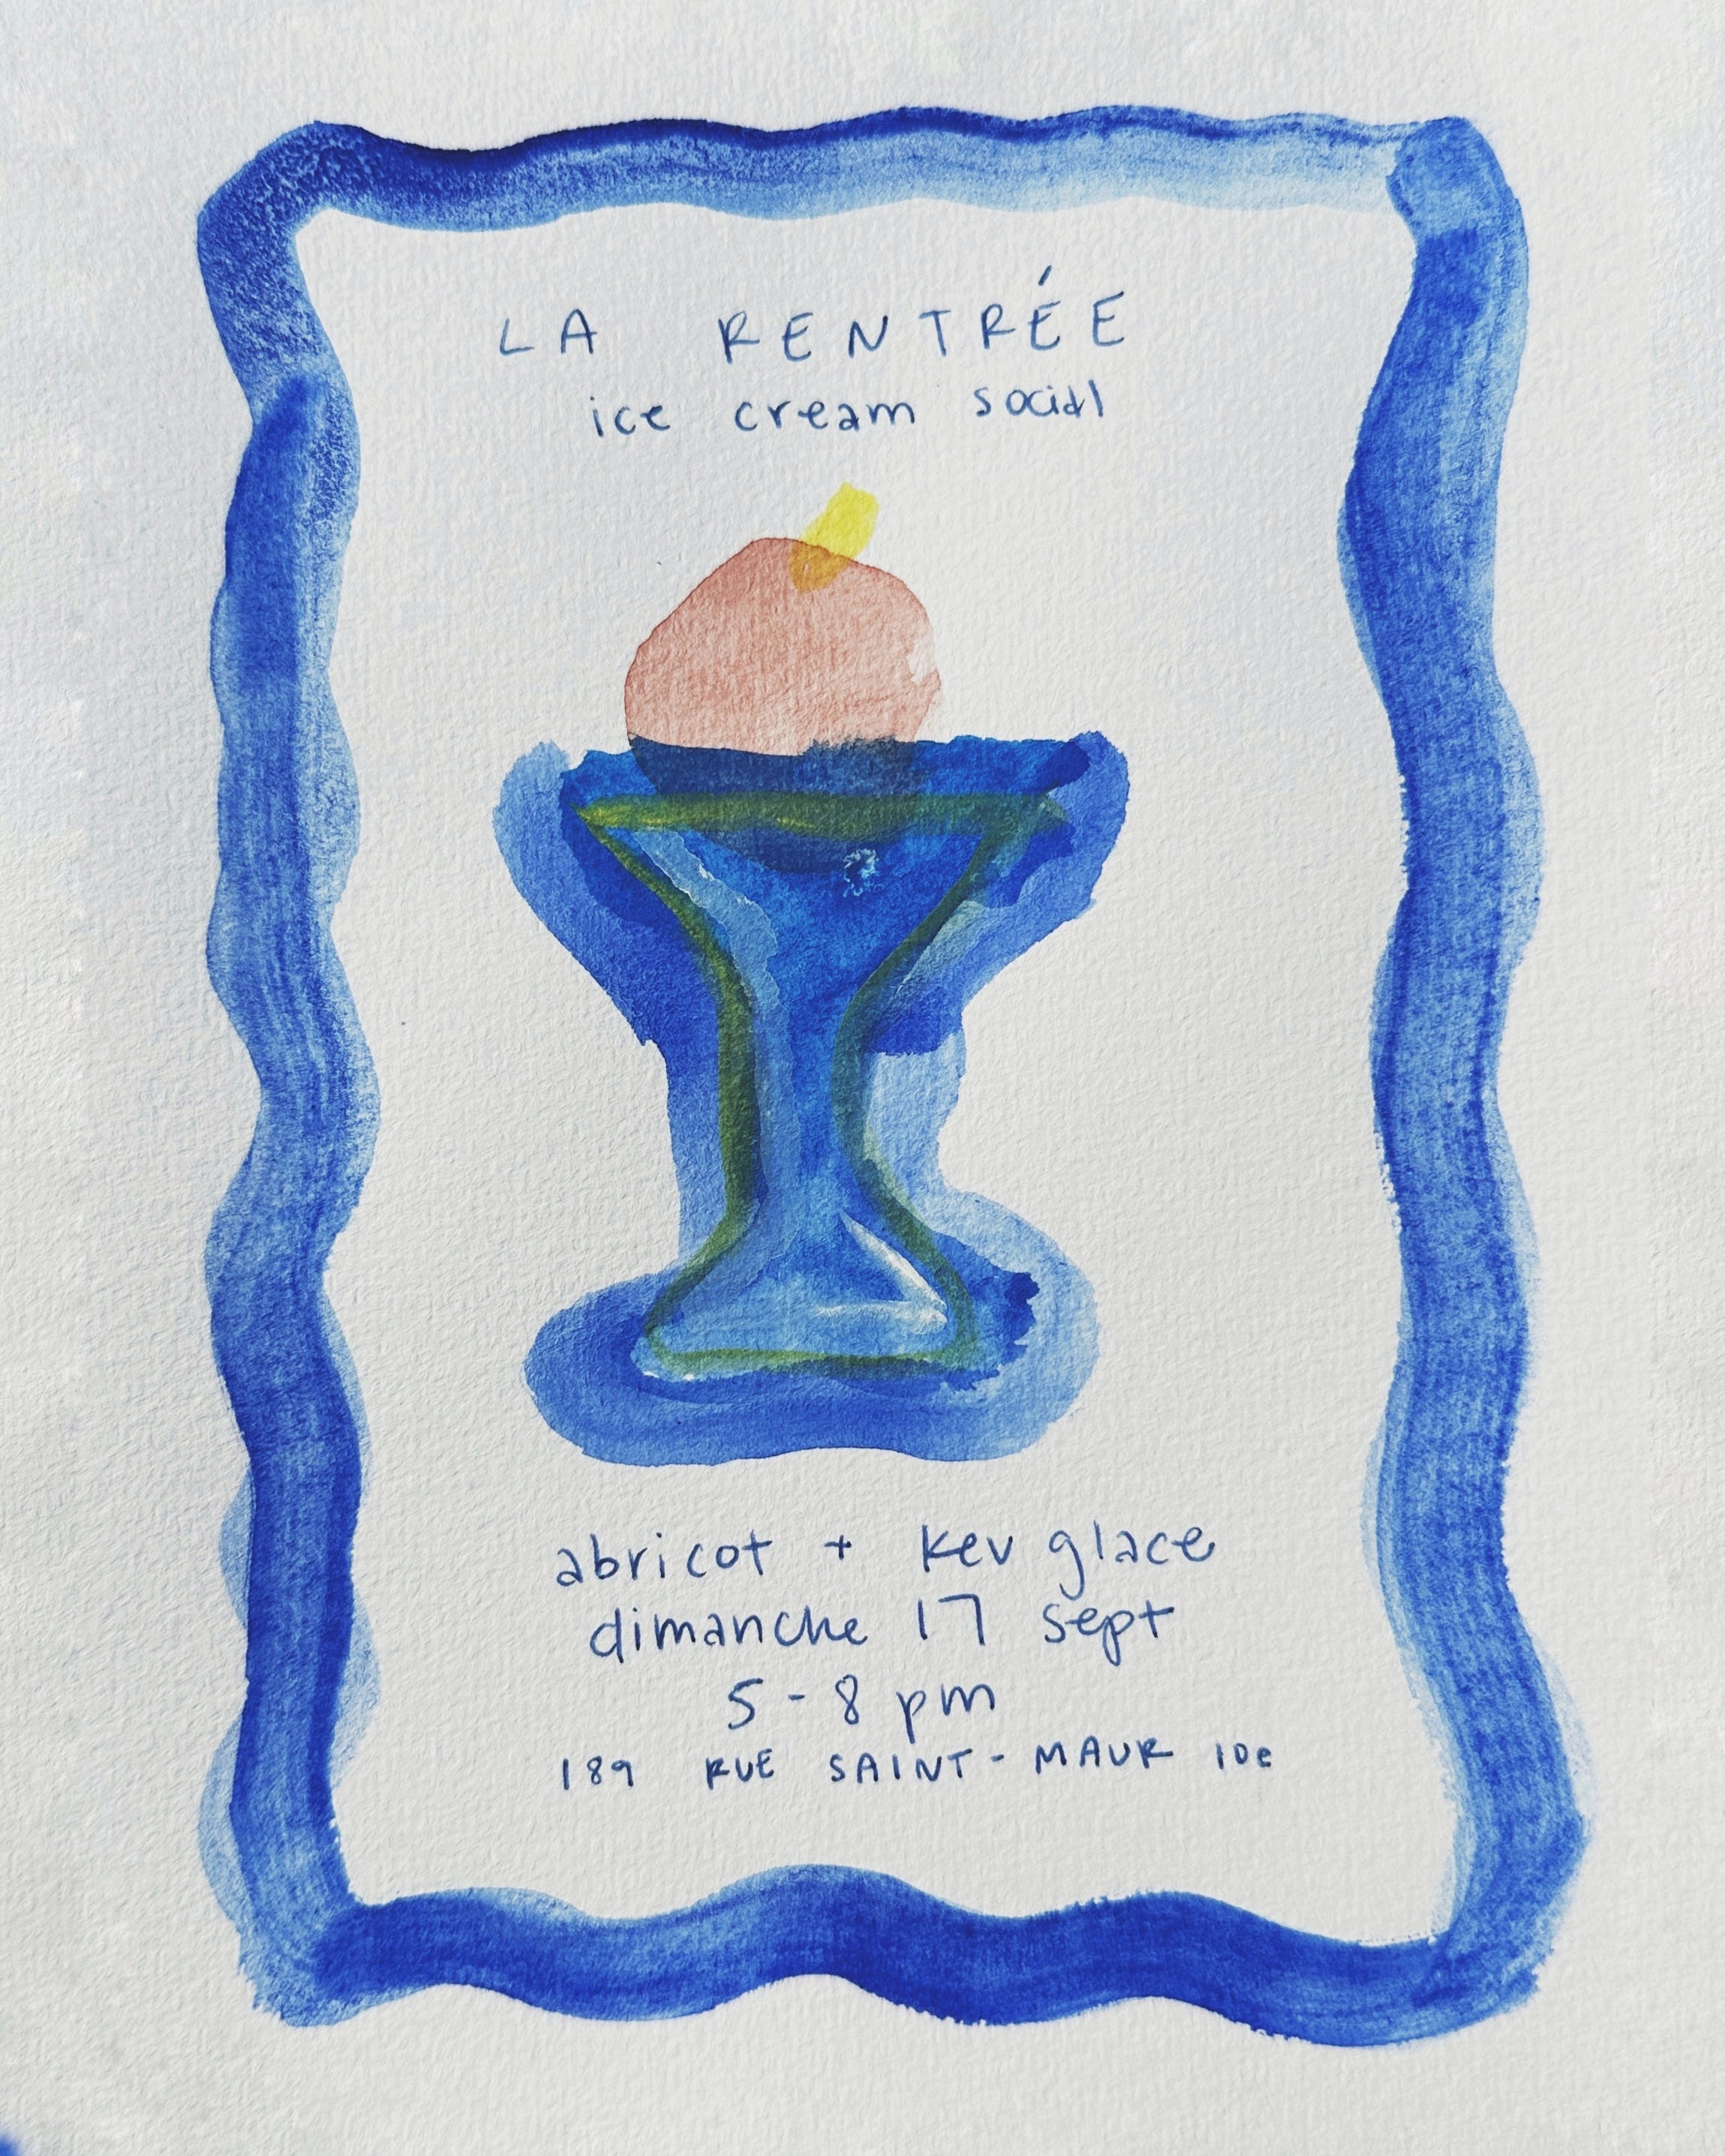 LA RENTRÉE
ice cream social
abricot + kev glace
dimanche 17 sept
5 - 8 pm
189 RUE SAINT-MAUR 10e